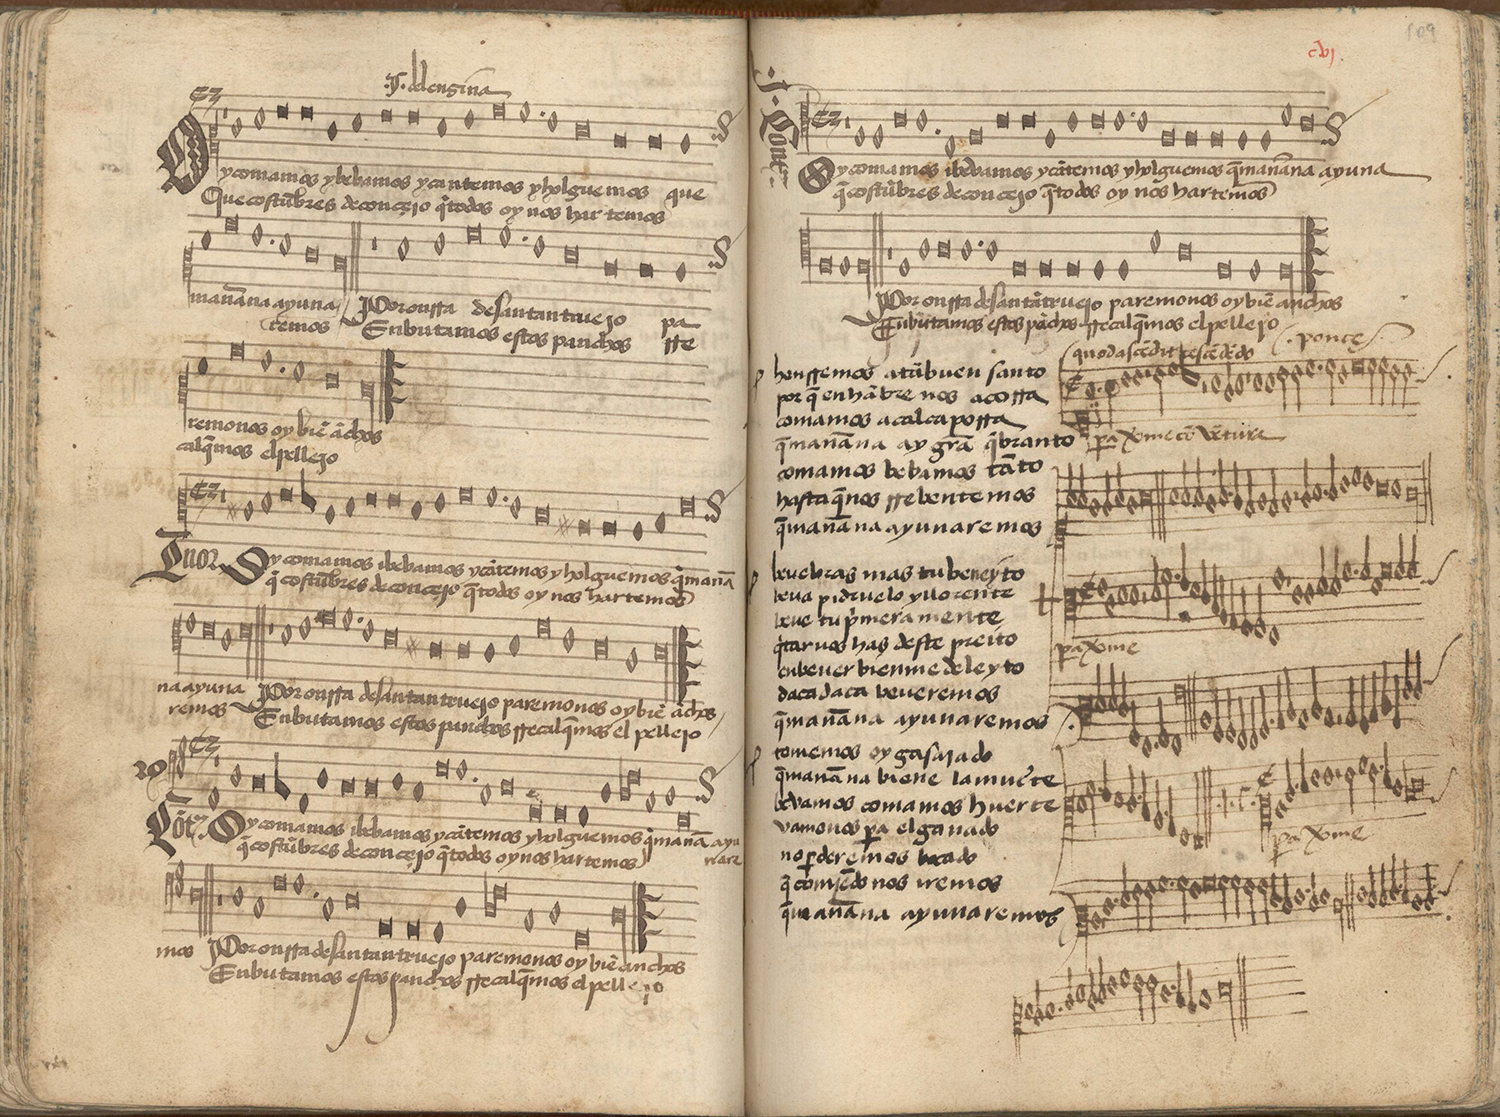 .J. del enzina
Oy comamos y bebamos y cantemos y holguemos que
Que costũbres de concejo q̃ todos oy nos hartemos
mañana ayuna / Por onrra de santantruejo pa
remos Enbutamos estos panchos rre
remonos oy biẽ ãchos
calq̃mos el pellejo
Tenor Oy comamos i bebamos y cãtemos y holguemos q̃ mañã
q̃ costũbres de concejo q̃ todos oy nos hartemos
na ayuna Por onrra de santantruejo paremonos oy biẽ ãchos
remos Enbutamos estos panchos rrecalq̃mos el pellejo
Cõtᵃ. Oy comamos i bebamos y cãtemos y holguemos q̃ mañã ayu
q̃ costũbres de concejo q̃ todos oy nos hartemos nare
mos Por onrra de santantruejo paremonos oy biẽ anchos
Enbutamos estos panchos rrecalq̃mos el pellejo
cvj.
109
Oy comamos i bebamos y cãtemos y holguemos q̃ mañana ayuna
q̃ costũbres de concejo q̃ todos oy nos hartemos
Por onrra de santãtruejo paremonos oy biẽ anchos
Enbutamos estos pãchos rrecalq̃mos el pellejo
honrremos a tã buen santo
por q̃ en hãbre nos acorra
comamos a calca porra
q̃ mañana ay grã q̃branto
comamos bebamos tãto
hasta q̃ nos rrebentemos
q̃ mañana ayunaremos
beue bras mas tu beneyto
beua pidruelo y llorente
beue tu pʳmeramente
q̃tarnos has deste preito
en beuer bien me deleyto
daca daca beueremos
q̃ mañana ayunaremos
tomemos oy gasajado
q̃ mañana biene la muerte
bevamos comamos huerte
vamonos pa el ganado
no perderemos bocado
q̃ comiẽdo nos iremos
q̃ mañana ayunaremos
quod ascẽdit descẽdẽdo .ponçe